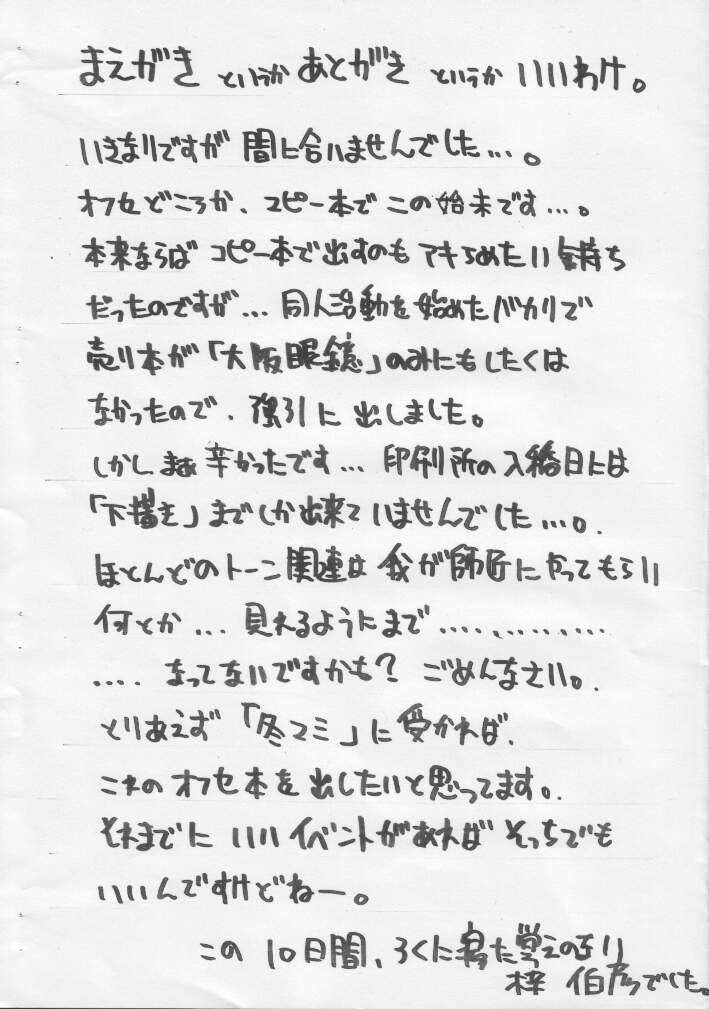 まえがき というか あとがき というか いいわけ。
いきなりですが 間に合いませんでした…。
オフセどころか、コピー本で この始末です…。
本来ならば コピー本で出すのも アキらめたい 気持ち
だったのですが… 同人活動を始めたバカリで
売り本が「大阪眼鏡」のみにもしたくは
なかったので、強引に 出しました。
しかし、まぁ 辛かったです… 印刷所の入稿日には
「下描き」までしか出来ていませんでした…。
ほとんどのトーン関連は 我が師匠にやってもらい
何とか… 見れるようにまで……………
…. なってないですかも? ごめんなさい。
とりあえず「冬コミ」に受かれば、
これの オフセ本を 出したいと思ってます。
それまでに いい イベントがあれば そっちでも
いいんですけどねー。
この 10日間、ろくに寝た覚えのない
梓 伯 でした。